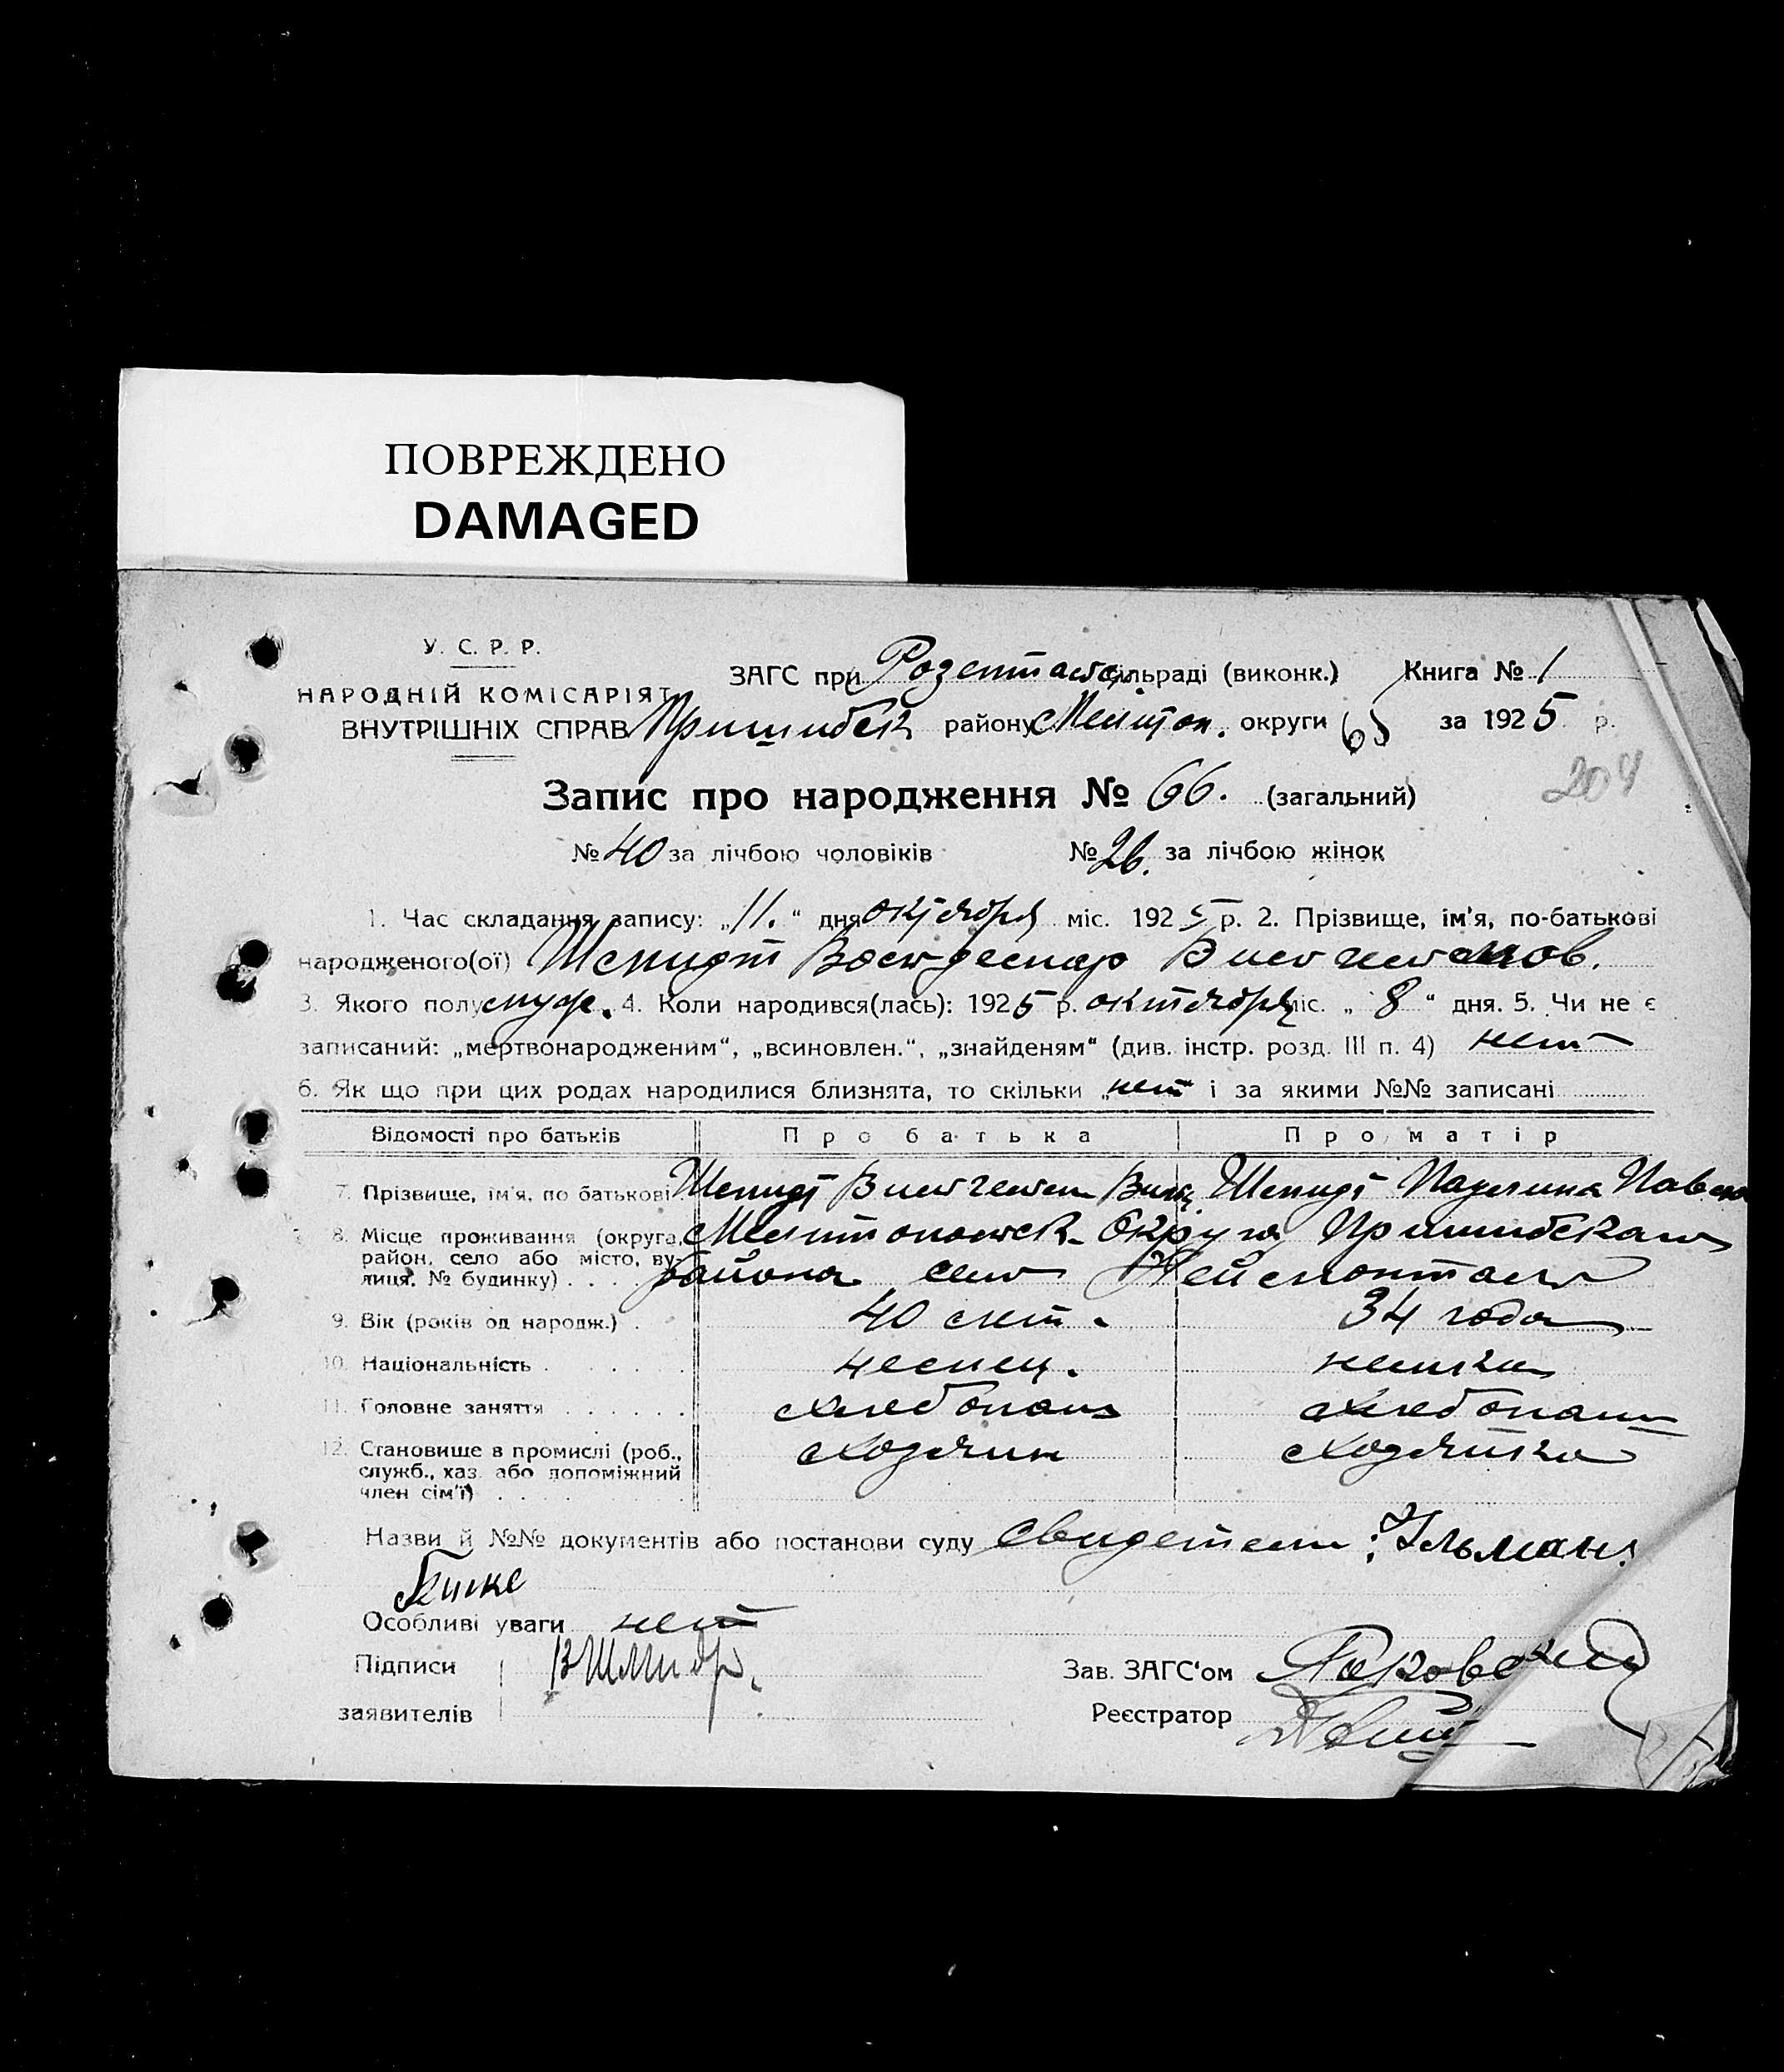 ПОВРЕЖДЕНО
DAMAGED
У. С. Р. Р.
НАРОДНІЙ КОМІСАРІЯТ
ВНУТРІШНІХ СПРАВ
ЗАГС при Розентальс. сільраді (виконк.) Книга № 1
Пришибск району Мелитоп. округи 65 за 1925 р.
204
Запис про народження № 66. (загальний)
№ 40 за лічбою чоловіків № 26. за лічбою жінок
1. Час складання запису: „11.“ дня октября міс. 1925 р. 2. Прізвище, ім'я, по-батькові
народженого(ої) Шмидт Вольдемар Вильгельмов.
3. Якого полу муж. 4. Коли народився(лась): 1925 р. октября міс. „8“ дня. 5. Чи не є
записаний: „мертвонародженим“, „всиновлен.“, „знайденям“ (див. інстр. розд. III п. 4) нет
6. Як що при цих родах народилися близнята, то скільки „нет“ і за якими №№ записані
Відомості про батьків Про батька Про матір
7. Прізвище, ім'я, по батькові Шмидт Вильгельм Вил. Шмидт Паулина Павлов
8. Місце проживання (округа, район, село або місто, вулиця, № будинку) Мелитопольск. Округа Пришибскаго
района село Неймонталь
9. Вік (років од народж.) 40 лет. 34 года
10. Національність немец. немка
11. Головне заняття хлебопаш хлебопаш
12. Становище в промислі (роб., служб., хаз. або допоміжний член сім'ї) хозяин хозяйка
Назви й №№ документів або постанови суду Свидетели:
Особливі уваги нет
Підписи В Шмидт.
заявителів
Зав. ЗАГС'ом
Реєстратор